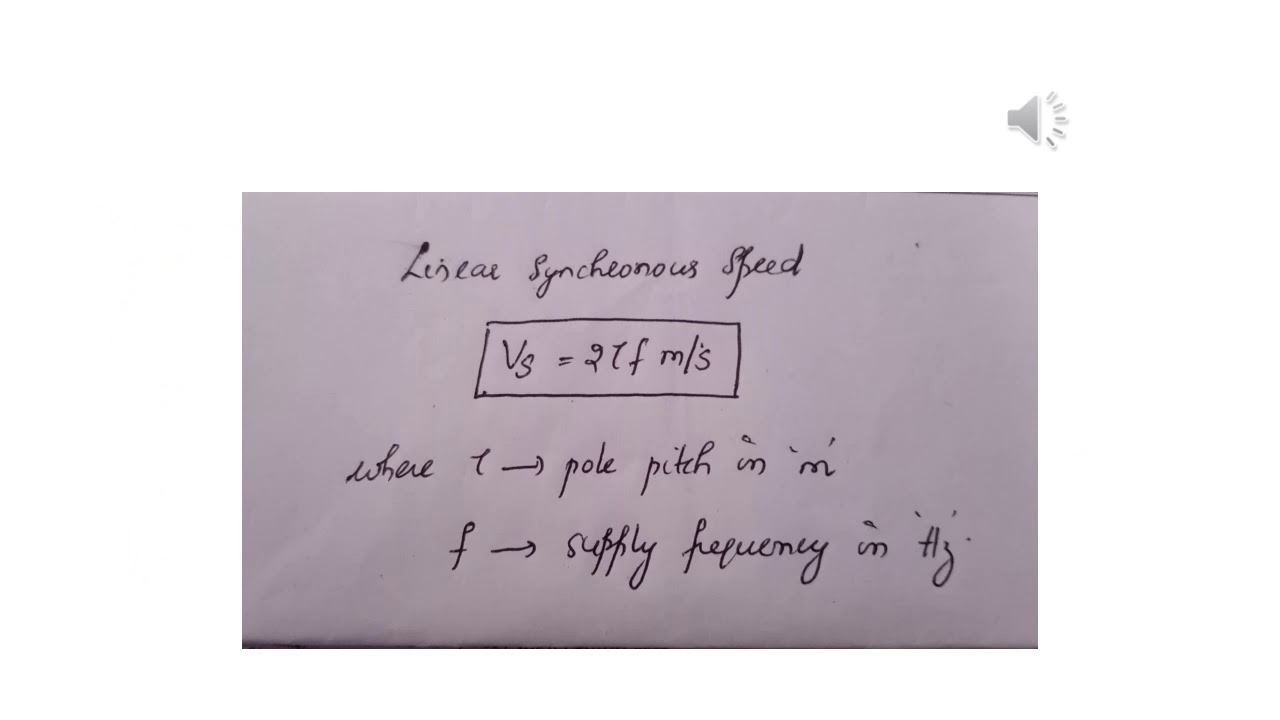 Linear Synchronous Speed
Vs = 2τf m/s
where τ → pole pitch in 'm'
f → supply frequency in 'Hz'.